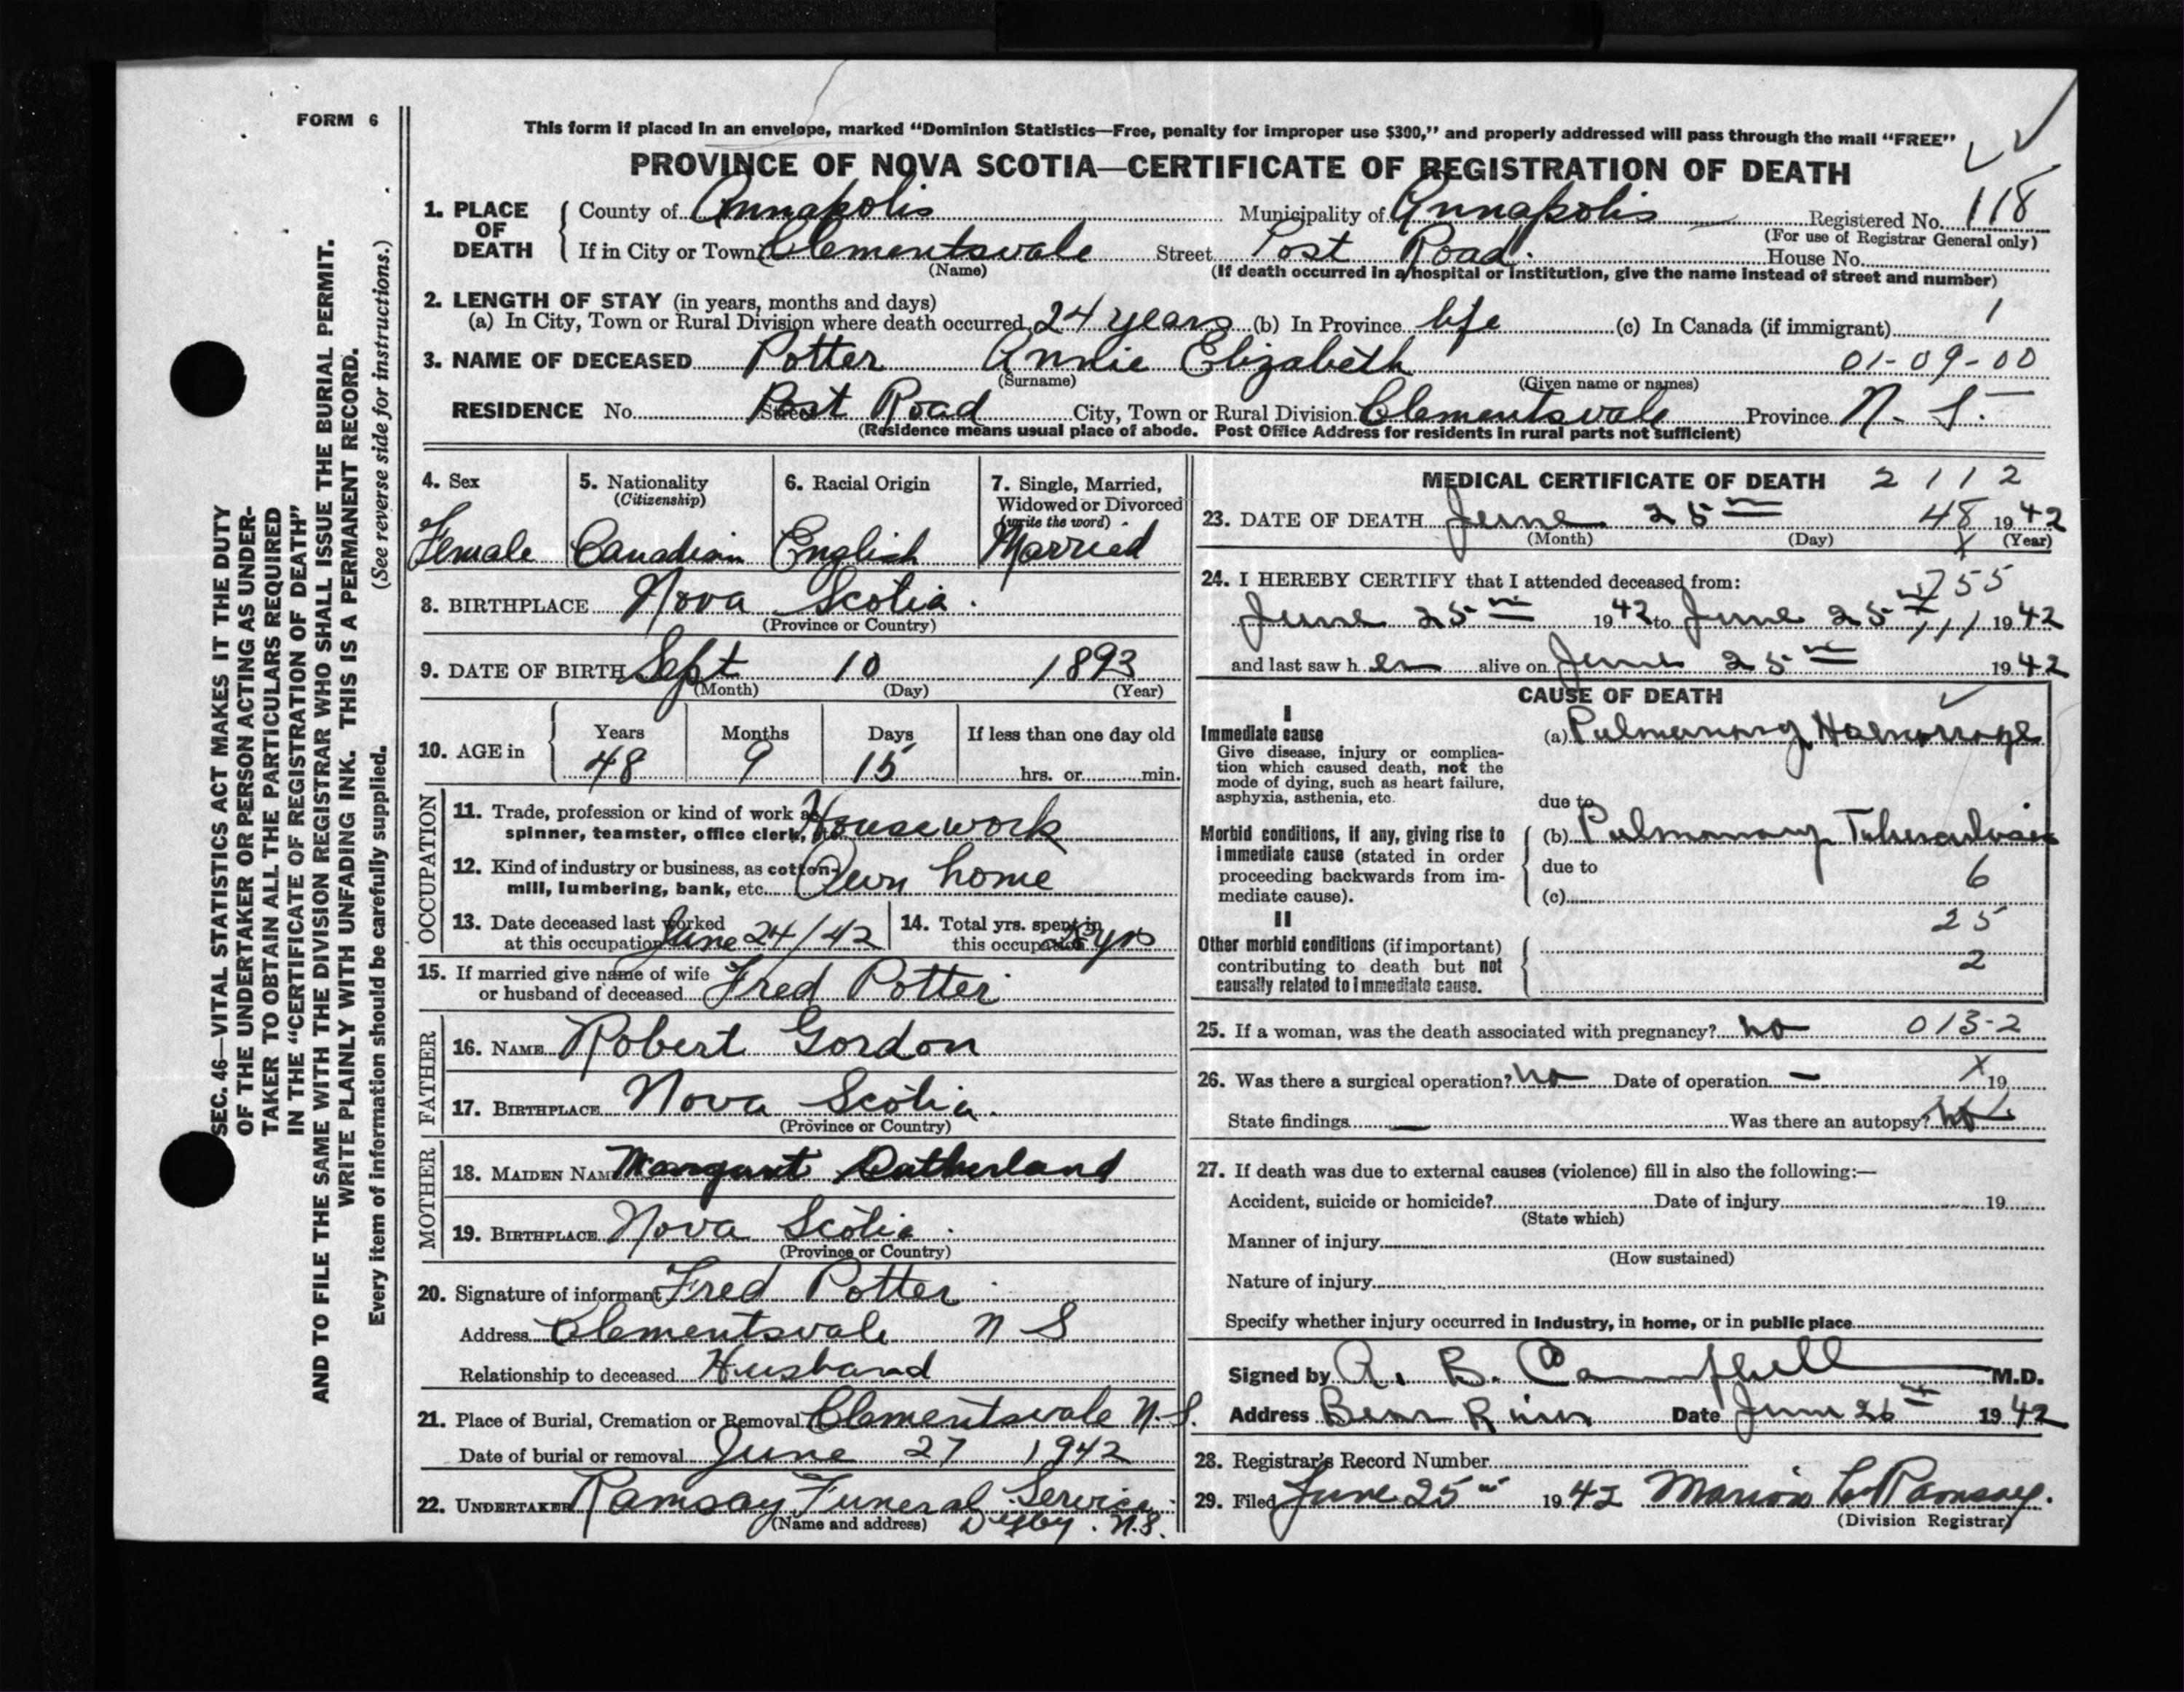 FORM 6
This form if placed in an envelope, marked "Dominion Statistics—Free, penalty for improper use $300," and properly addressed will pass through the mail "FREE"
PROVINCE OF NOVA SCOTIA—CERTIFICATE OF REGISTRATION OF DEATH
1. PLACE OF DEATH
County of Annapolis Municipality of Annapolis Registered No. 118
(For use of Registrar General only)
If in City or Town Clementsvale Street Post Road. House No.
(Name) (If death occurred in a hospital or institution, give the name instead of street and number)
2. LENGTH OF STAY (in years, months and days)
(a) In City, Town or Rural Division where death occurred 24 years (b) In Province life (c) In Canada (if immigrant) 1
3. NAME OF DECEASED Potter Annie Elizabeth 01-09-00
(Surname) (Given name or names)
RESIDENCE No. Street Post Road City, Town or Rural Division Clementsvale Province N. S.
(Residence means usual place of abode. Post Office Address for residents in rural parts not sufficient)
4. Sex
Female
5. Nationality
(Citizenship)
Canadian
6. Racial Origin
English
7. Single, Married,
Widowed or Divorced
(write the word)
Married
8. BIRTHPLACE Nova Scotia.
(Province or Country)
9. DATE OF BIRTH Sept 10 1893
(Month) (Day) (Year)
10. AGE in
Years Months Days If less than one day old
48 9 15 hrs. or min.
OCCUPATION
11. Trade, profession or kind of work as
spinner, teamster, office clerk, etc. Housework
12. Kind of industry or business, as cotton-
mill, lumbering, bank, etc. Own home
13. Date deceased last worked
at this occupation June 24/42
14. Total yrs. spent in
this occupation yrs
15. If married give name of wife
or husband of deceased Fred Potter
FATHER
16. NAME Robert Gordon
17. BIRTHPLACE Nova Scotia.
(Province or Country)
MOTHER
18. MAIDEN NAME Margaret Sutherland
19. BIRTHPLACE Nova Scotia.
(Province or Country)
20. Signature of informant Fred Potter
Address Clementsvale N S
Relationship to deceased Husband
21. Place of Burial, Cremation or Removal Clementsvale N.S.
Date of burial or removal June 27 1942
22. UNDERTAKER Ramsay Funeral Service
(Name and address) Digby. N.S.
MEDICAL CERTIFICATE OF DEATH 2112
23. DATE OF DEATH June 25th 48 1942
(Month) (Day) X (Year)
24. I HEREBY CERTIFY that I attended deceased from: 755
June 25th 1942 to June 25th 111 1942
and last saw her alive on June 25th 1942
CAUSE OF DEATH
I
Immediate cause
Give disease, injury or complica-
tion which caused death, not the
mode of dying, such as heart failure,
asphyxia, asthenia, etc.
(a) Pulmonary Haemorrage
due to
Morbid conditions, if any, giving rise to
immediate cause (stated in order
proceeding backwards from im-
mediate cause).
(b) Pulmonary Tuberculosis
due to 6
(c)
II 25
Other morbid conditions (if important)
contributing to death but not
causally related to immediate cause.
2
25. If a woman, was the death associated with pregnancy? no 013-2
26. Was there a surgical operation? no Date of operation — X 19
State findings — Was there an autopsy? no
27. If death was due to external causes (violence) fill in also the following:—
Accident, suicide or homicide? Date of injury 19
(State which)
Manner of injury
(How sustained)
Nature of injury
Specify whether injury occurred in industry, in home, or in public place
Signed by A. B. Campbell M.D.
Address Bear River Date June 26th 1942
28. Registrar's Record Number
29. Filed June 25th 1942 Marion L. Ramsay.
(Division Registrar)
SEC. 46—VITAL STATISTICS ACT MAKES IT THE DUTY
OF THE UNDERTAKER OR PERSON ACTING AS UNDER-
TAKER TO OBTAIN ALL THE PARTICULARS REQUIRED
IN THE "CERTIFICATE OF REGISTRATION OF DEATH"
AND TO FILE THE SAME WITH THE DIVISION REGISTRAR WHO SHALL ISSUE THE BURIAL PERMIT.
WRITE PLAINLY WITH UNFADING INK. THIS IS A PERMANENT RECORD.
Every item of information should be carefully supplied. (See reverse side for instructions.)